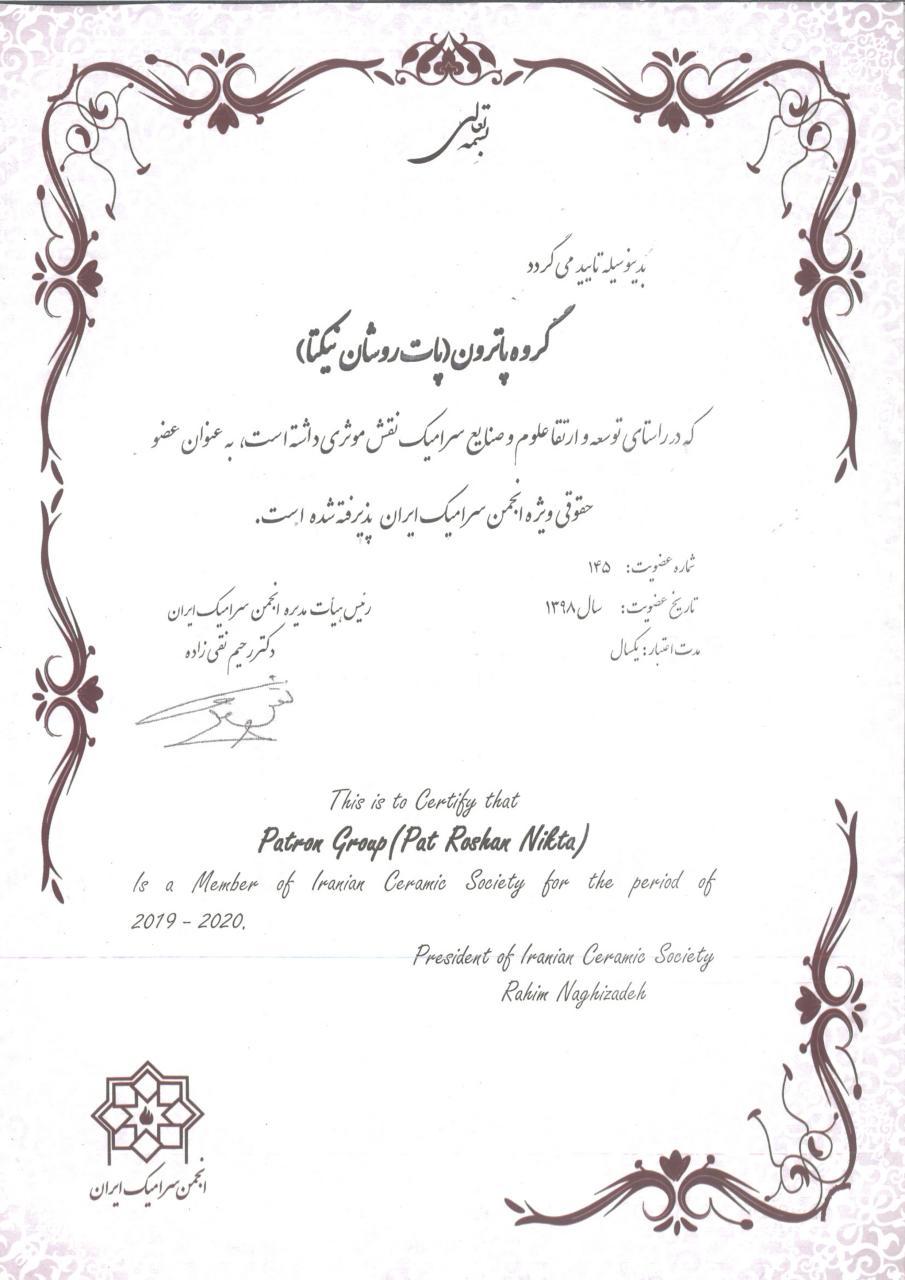 بسمه تعالی
بدینوسیله تایید می گردد
گروه پاترون (پات روشان نیکتا)
که در راستای توسعه و ارتقا علوم و صنایع سرامیک نقش موثری داشته است، به عنوان عضو
حقوقی ویژه انجمن سرامیک ایران پذیرفته شده است.
شماره عضویت: ۱۴۵
تاریخ عضویت: سال ۱۳۹۸
مدت اعتبار: یکسال
رئیس هیأت مدیره انجمن سرامیک ایران
دکتر رحیم نقی زاده
This is to Certify that
Patron Group (Pat Roshan Nikta)
Is a Member of Iranian Ceramic Society for the period of
2019 - 2020.
President of Iranian Ceramic Society
Rahim Naghizadeh
انجمن سرامیک ایران